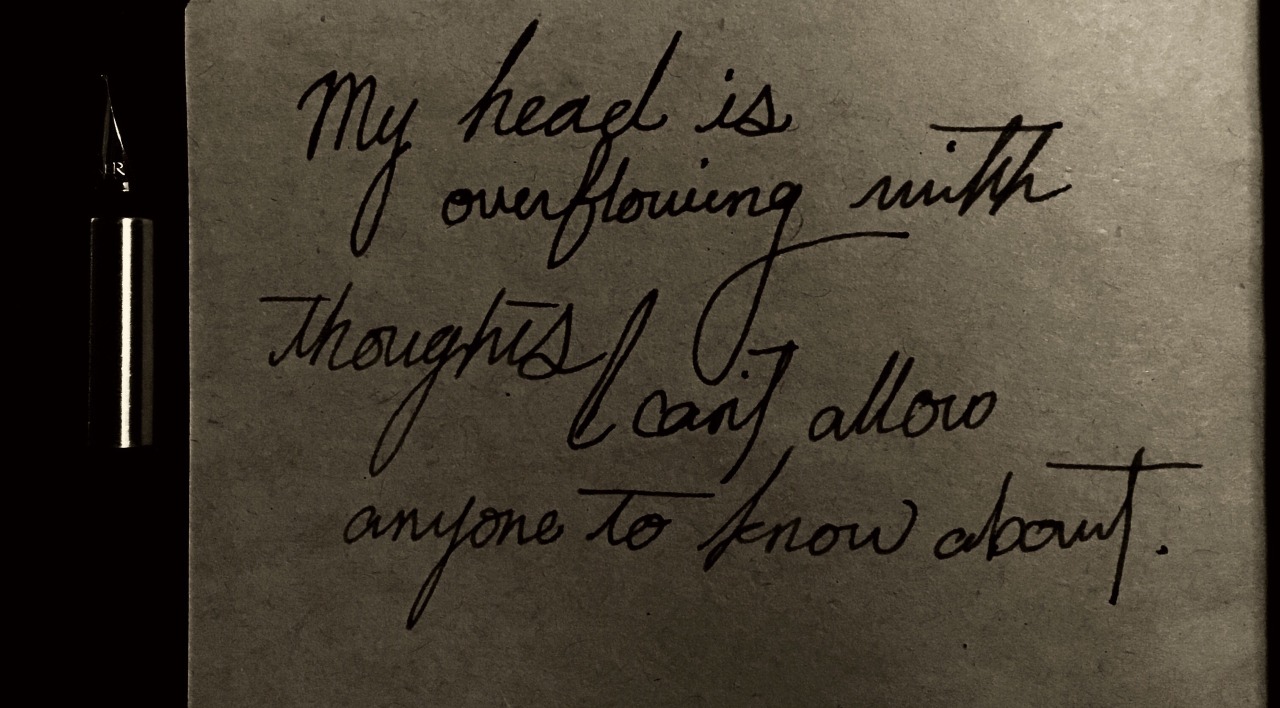 R
My head is
overflowing with
thoughts I can't allow
anyone to know about.